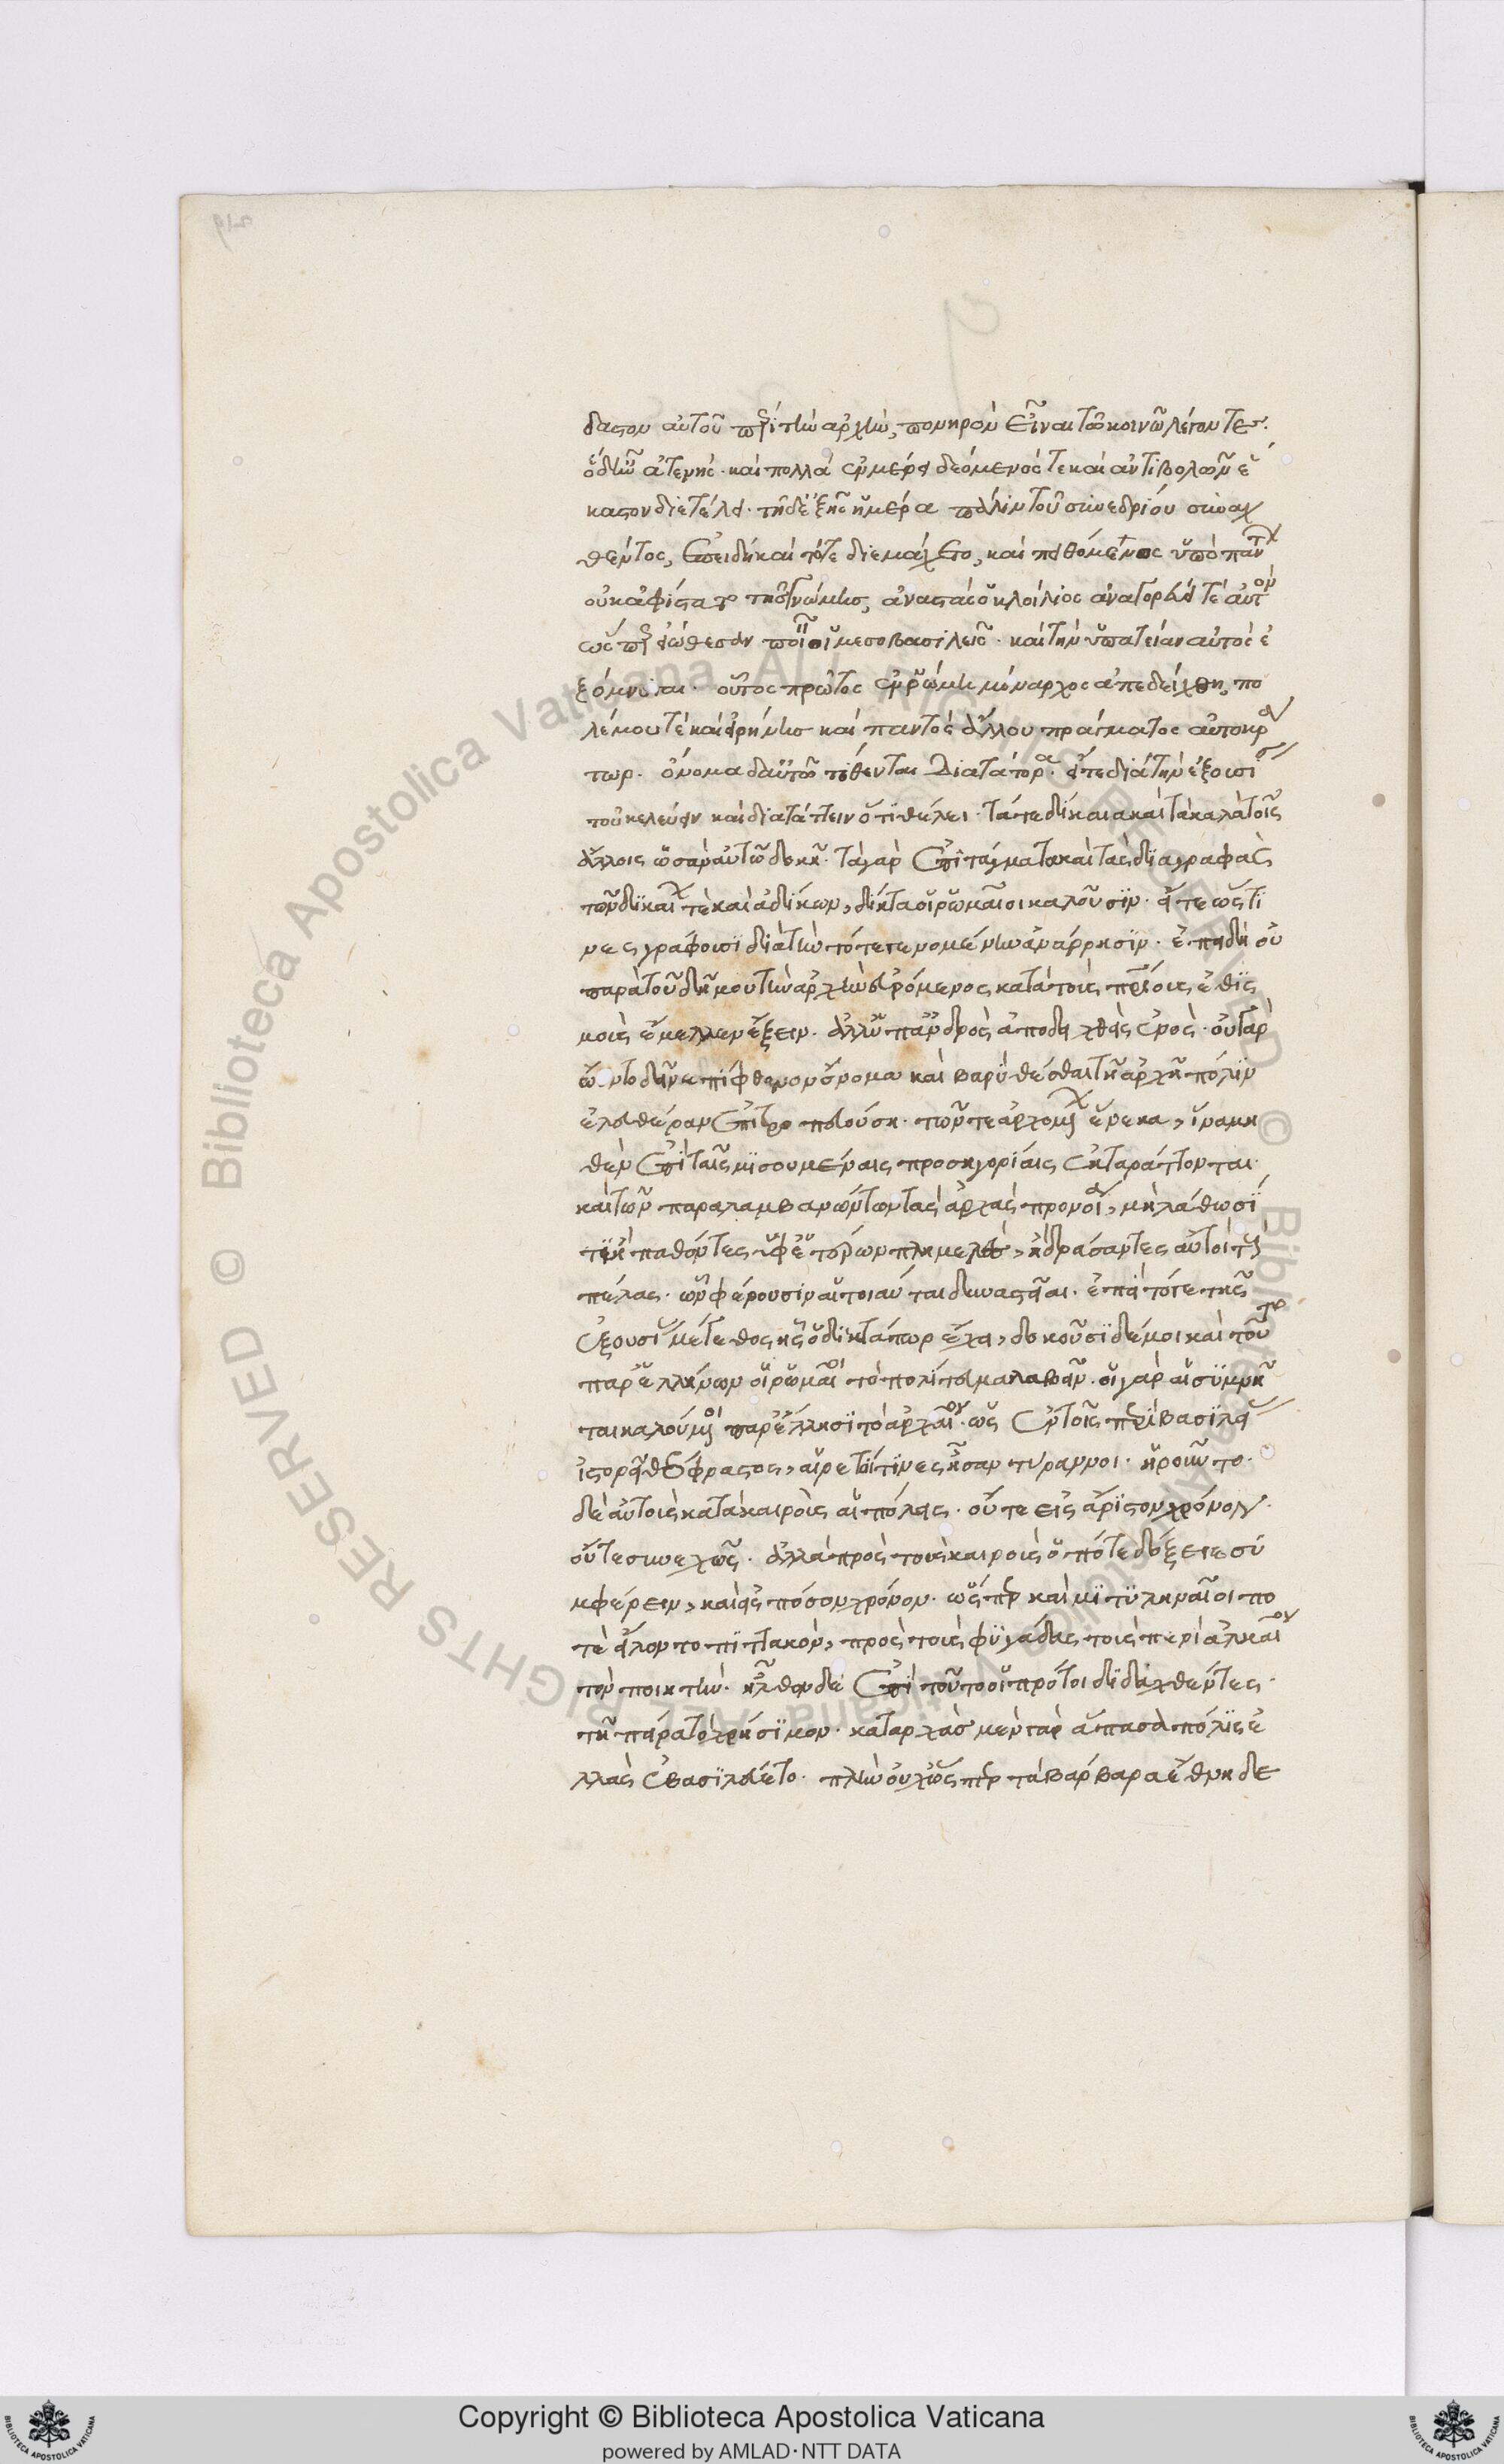 δαστον αὐτοῦ περὶ τὴν ἀρχὴν, πονηρὸν εἶναι τῶ κοινῶ λέγοντες.
ὁ δ' ἦν ἀτενὴς. καὶ πολλὰ ἐν μέρει δεόμενός τε καὶ ἀντιβολῶν ἕ
καστον διετέλει. τῆ δὲ ἑξῆς ἡμέρα πάλιν τοῦ συνεδρίου συναχ
θέντος, ἐπειδὴ καὶ τότε διεμάχετο, καὶ πειθόμενος ὑπὸ πάντων
οὐκ ἀφίστατο τῆς γνώμης, ἀναστὰς ὁ κλοίλιος ἀναγορεύει τὲ αὐτὸν
ὡς περ εἰώθεσαν ποιεῖν οἱ μεσοβασιλεῖς. καὶ τὴν ὑπατείαν αὐτὸς ἐ
ξόμνυται. οὗτος πρῶτος ἐν ῥώμη μόναρχος ἀπεδείχθη, πο
λέμου τὲ καὶ εἰρήνης καὶ παντὸς ἄλλου πράγματος αὐτοκρά
τωρ. ὄνομα δ' αὐτῶ τίθενται διατάτορα. εἴτε διὰ τὴν ἐξουσίαν
τοῦ κελεύειν καὶ διατάττειν ὅ τι θέλει. τά τε δίκαια καὶ τὰ καλὰ τοῖς
ἄλλοις ὡς ἂν αὐτῶ δοκῆ. τὰ γὰρ ἐπιτάγματα καὶ τὰς διαγραφὰς
τῶν δικαίων τὲ καὶ ἀδίκων, δίκτα οἱ ῥωμαῖσι καλοῦσιν. εἴτε ὥς τι
νες γράφουσι διὰ τὴν τότε γενομένην ἀνάρρησιν. ἐπειδὴ οὐ
παρὰ τοῦ δήμου τὴν ἀρχὴν εὑρόμενος κατὰ τοὺς πατρίους ἐθις
μοὺς ἔμελλεν ἕξειν. ἀλλ' ὑπ' ἀνδρὸς ἀποδειχθεὶς ἑνὸς. οὐ γὰρ
ὤοντο δεῖν ἐπίφθονον ὄνομα καὶ βαρὺ θέσθαι τῆ ἀρχῆ πόλιν
ἐλευθέραν ἐπιτροπευούση. τῶν τε ἀρχομένων ἕνεκα, ἵνα μη
θὲν ἐπὶ ταῖς μισουμέναις προσηγορίαις ἐκταράττονται.
καὶ τῶν παραλαμβανόντων τὰς ἀρχὰς προνοία, μὴ λάθωσί
τι ἢ παθόντες ὑφ' ἑτέρων πλημελὲς, ἢ δράσαντες αὐτοὶ τοὺς
πέλας. ὧν φέρουσιν αἱ τοιαῦται δυναστεῖαι. ἐπεὶ τό γε τῆς
ἐξουσίας μέγεθος ἧς ὁ δικτάτωρ ἔχει, δοκοῦσι δέ μοι καὶ τοῦτο
παρ' ἑλλήνων οἱ ῥωμαῖοι τὸ πολίτευμα λαβεῖν. οἱ γὰρ αἰσυμνῆ
ται καλούμενοι παρ' ἕλλησι τὸ ἀρχαῖον. ὡς ἐν τοῖς περὶ βασιλείας
ἱστορεῖ θεόφραστος, αἱρετοί τινες ἦσαν τύραννοι. ἡροῦντο.
δὲ αὐτοὺς κατὰ καιροὺς αἱ πόλεις. οὔτε εἰς ἀρίστον χρόνον.
οὔτε συνεχῶς. ἀλλὰ πρὸς τοὺς καιροὺς ὁπότε δόξειε συ
μφέρειν, καὶ εἰς πόσον χρόνον. ὥς περ καὶ μιτυληναῖοι πο
τὲ εἵλοντο πιττακὸν, πρὸς τοὺς φυγάδας τοὺς περὶ ἀλκαῖον
τὸν ποιητὴν. ἦλθον δὲ ἐπὶ τοῦτο οἱ πρῶτοι διδαχθέντες.
τῆ πείρα τὸ χρήσιμον. καταρχὰς μὲν γὰρ ἅπασα πόλις ἑ
λλὰς ἐβασιλεύετο. πλὴν οὐχ ὥς περ τὰ βάρβαρα ἔθνη δε
Copyright © Biblioteca Apostolica Vaticana
powered by AMLAD·NTT DATA